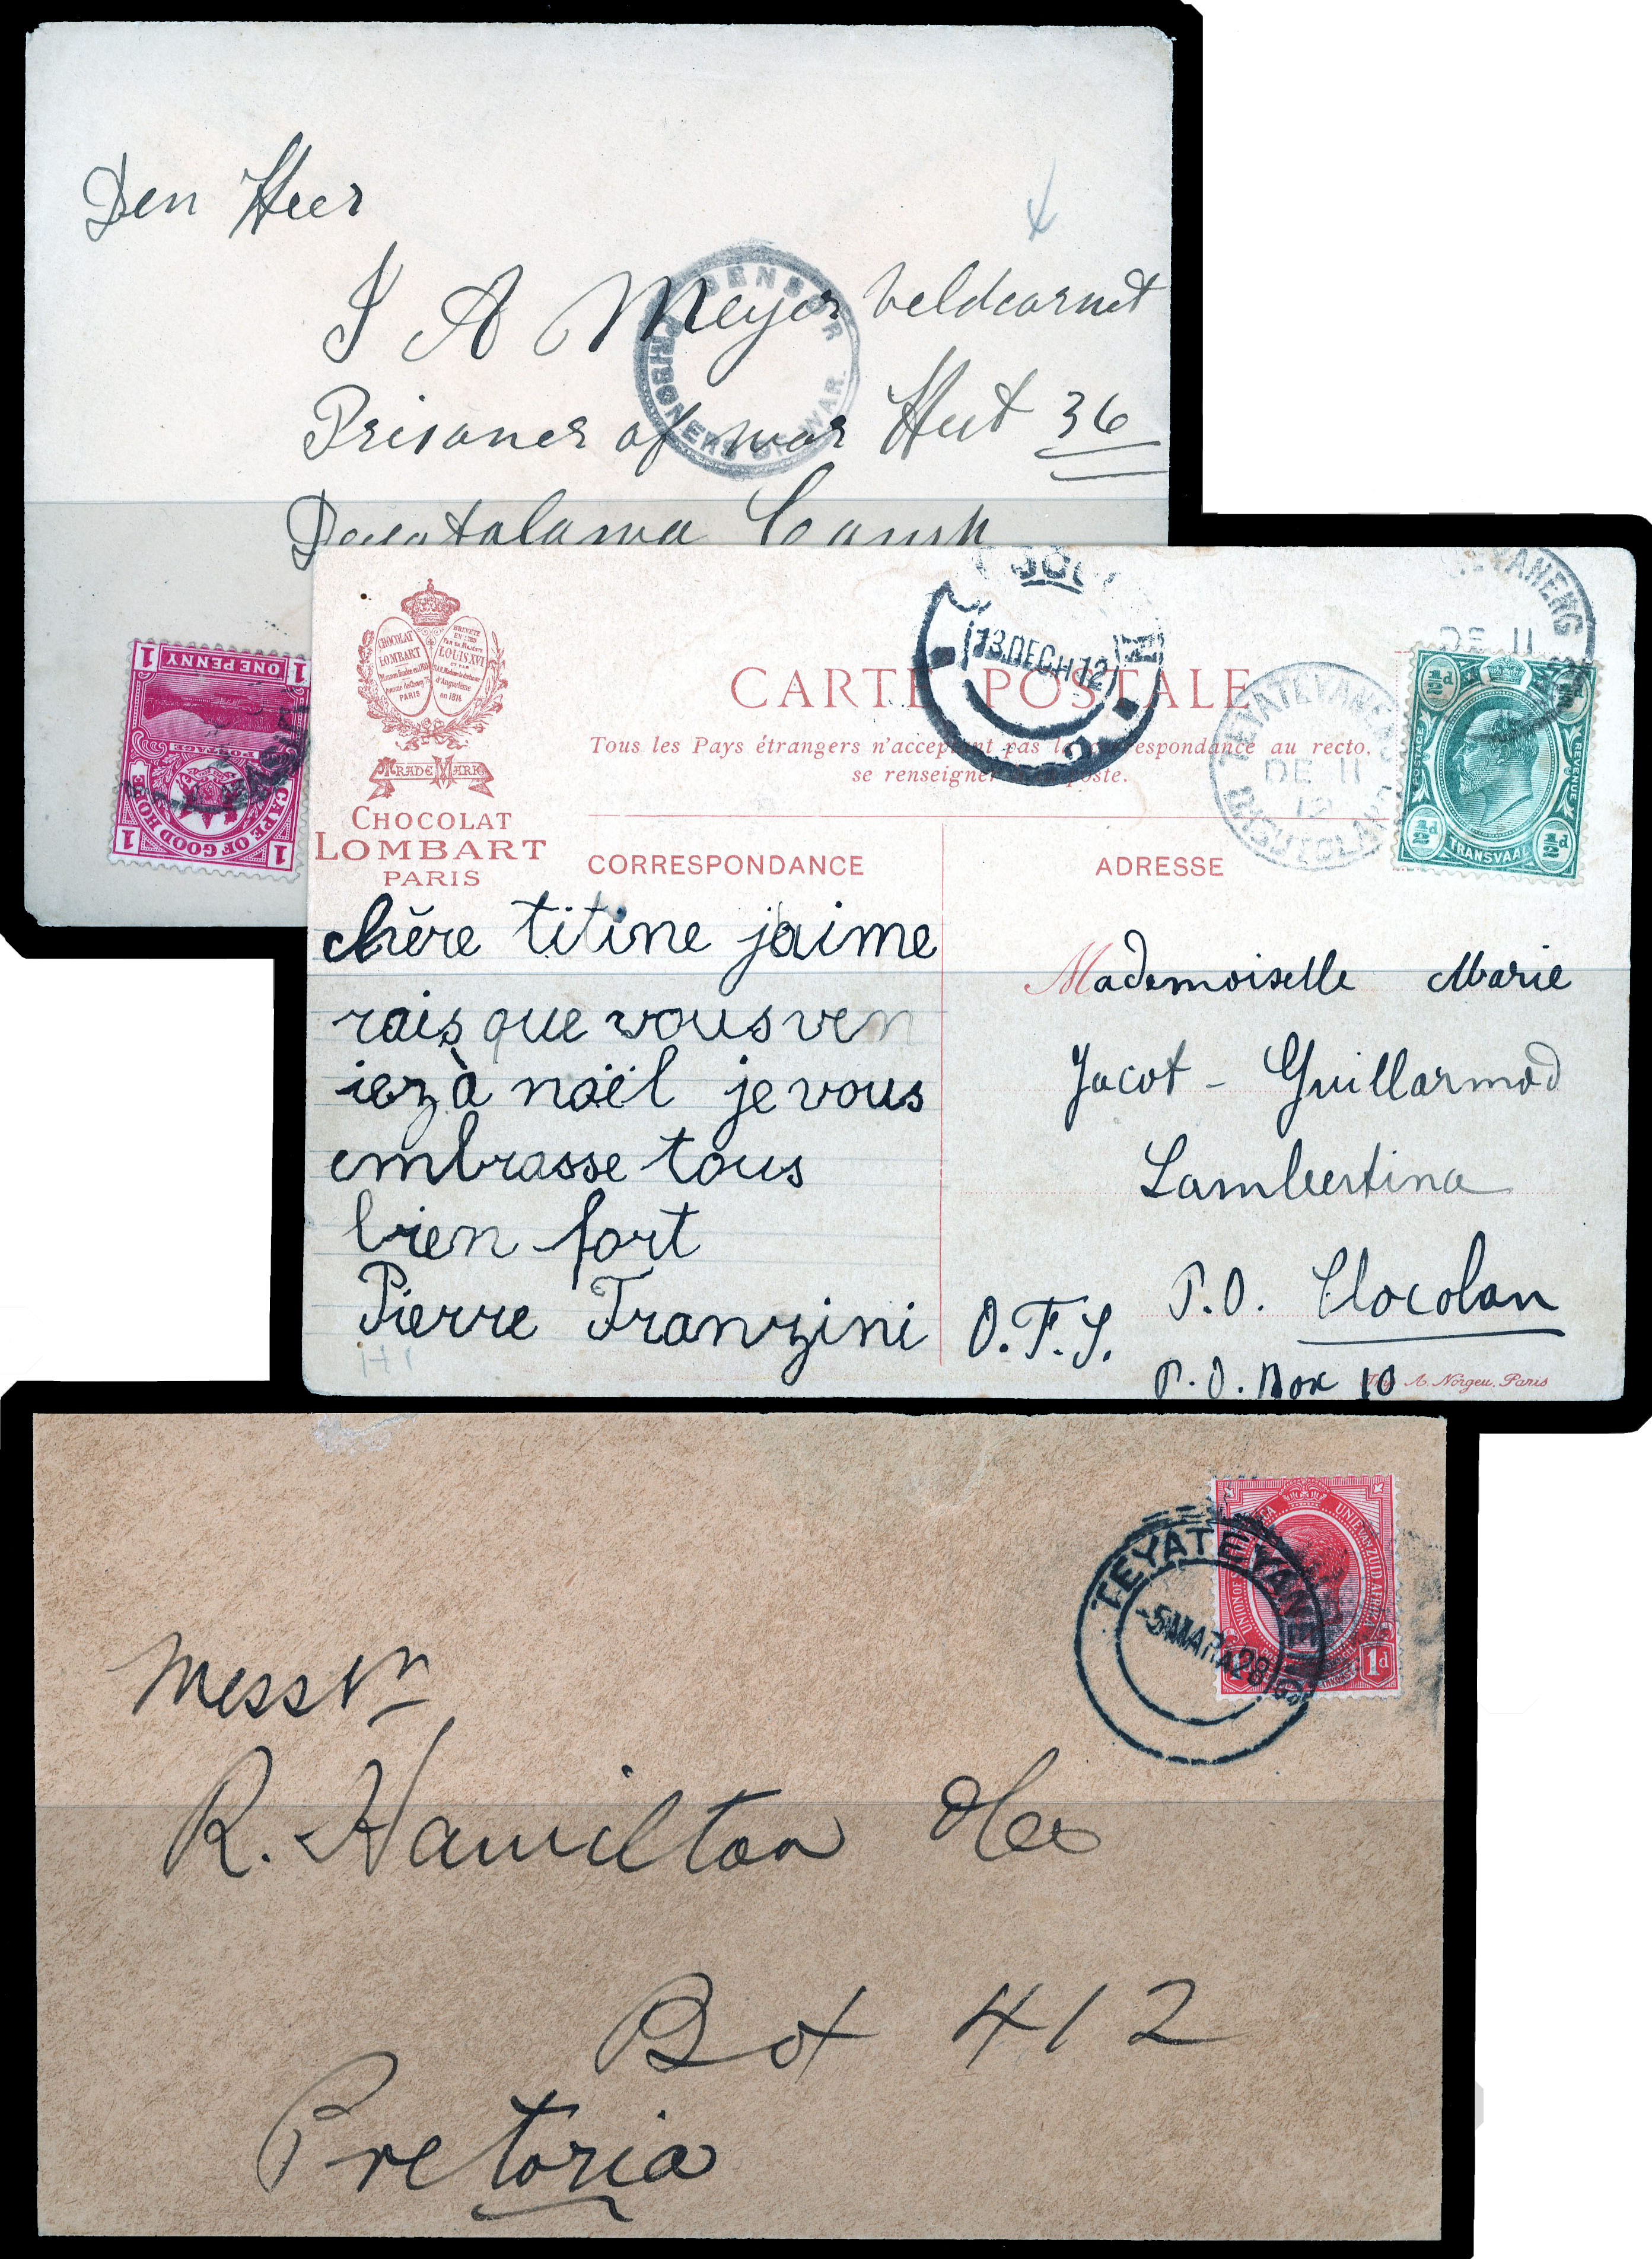 Den Heer
J A Meyer Veldcornet
Prisoner of war Hut 36
Camp
CENSOR
PRISONERS OF WAR.
1 ONE PENNY 1
POSTAGE
CAPE OF GOOD HOPE
1 1
CHOCOLAT
LOMBART
PARIS
BREVETÉ
LOUIS XVI
d'Angoulême
en 1814
TRADE MARK
CHOCOLAT
LOMBART
PARIS
CARTE POSTALE
Tous les Pays étrangers n'acceptent pas la correspondance au recto,
se renseigner à la poste.
13 DEC 12
2
TEYATEYANENG
DE 11
12
BASUTOLAND
TEYANENG
DE 11
½d ½d
POSTAGE
REVENUE
½d ½d
TRANSVAAL
CORRESPONDANCE
ADRESSE
chère titine jaime
rais que vous ven
iez à noël je vous
embrasse tous
bien fort
Pierre Franzini
Mademoiselle Marie
Jacot - Guillarmod
Lambertina
P.O. Clocolan
O.F.S.
P.O. Box 10
Imp A. Norgeu, Paris
H1
UNION OF S
UNIE VAN ZUID AFRIKA
1d
TEYATEYANE
-5 MAR 28
Messrs
R. Hamilton
Box 412
Pretoria